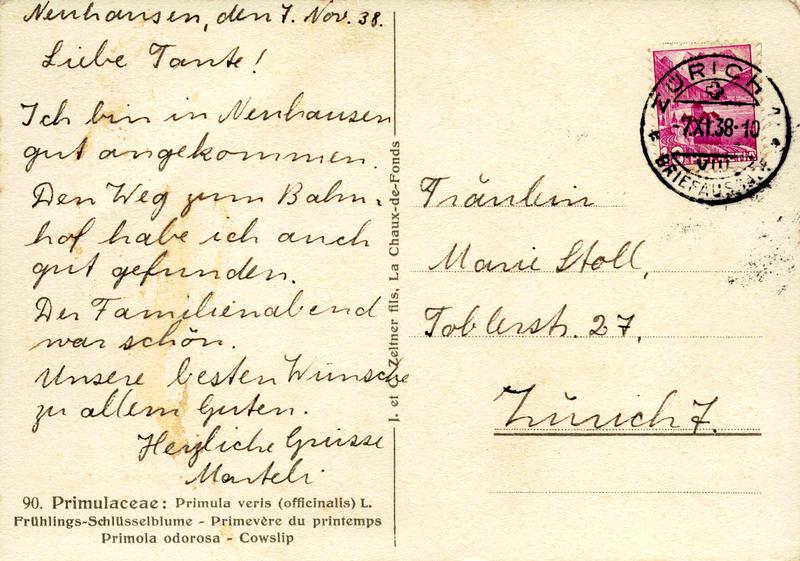 Neuhausen, den 7. Nov. 38.
Liebe Tante!
Ich bin in Neuhausen
gut angekommen.
Den Weg zum Bahn-
hof habe ich auch
gut gefunden.
Der Familienabend
war schön.
Unsere besten Wünsche
zu allem Guten.
Herzliche Grüsse
Marteli
90. Primulaceae: Primula veris (officinalis) L.
Frühlings-Schlüsselblume - Primevère du printemps
Primola odorosa - Cowslip
J. et C. Zeltner fils, La Chaux-de-Fonds
ZÜRICH
-7.XI.38-10
VIII
BRIEFAUSGABE
Fräulein
Marie Stoll,
Toblerstr. 27,
Zürich 7.